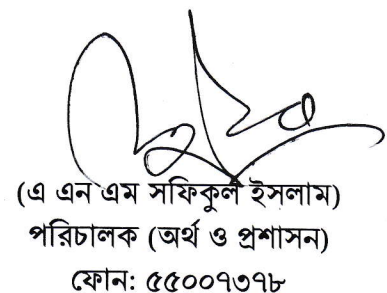 (এ এন এম সফিকুল ইসলাম)
পরিচালক (অর্থ ও প্রশাসন)
ফোন: ৫৫০০৭৩৭৮